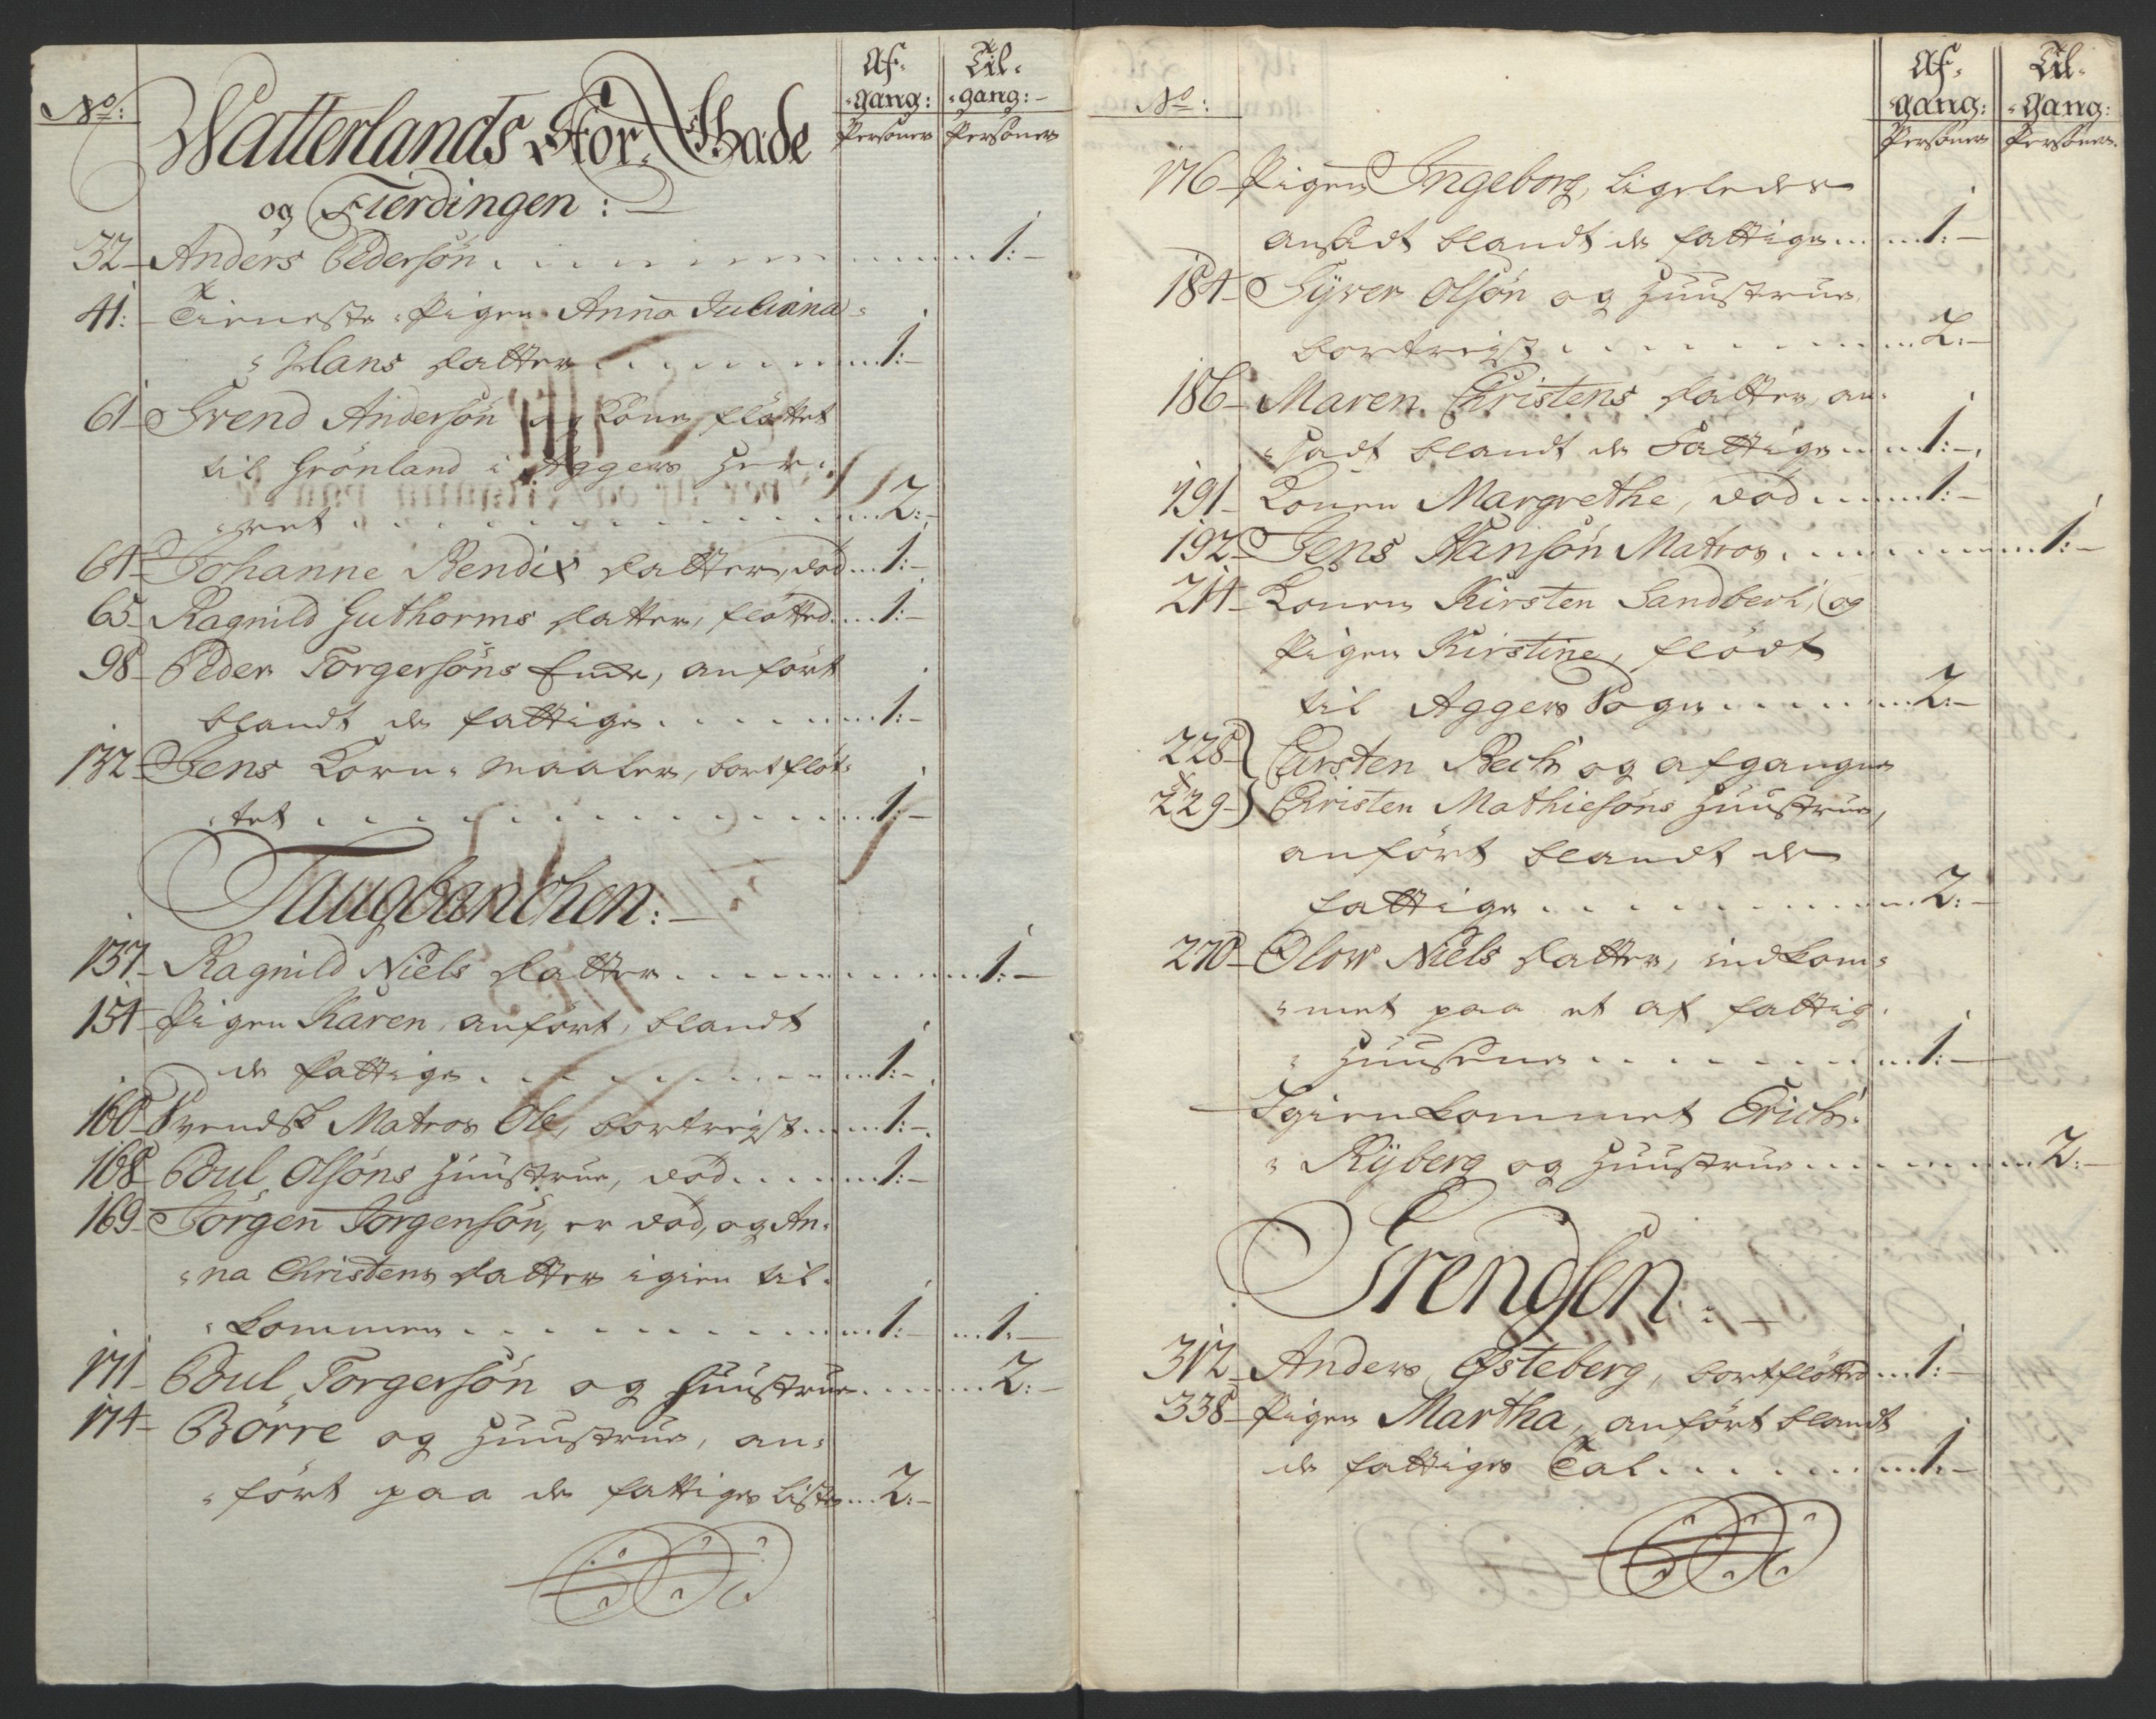 No:
Af-
gang:
Personer
Til-
gang:
Personer
Watterlands Stor-Gade
og Fierdingen:
32 Anders Pedersön 1:
41: Tieneste-Pigen Anna Juliana
Hans Datter 1:
61 Svend Andersön og Kone fløttet
til Grönland i Aggers Her-
ret 2:
64 Johanne Bendix Datter, död 1:
65 Ragnild Guthorms Datter, fløtted 1:
98 Peder Torgersöns Encke, anfört
blandt de fattige 1:
132 Jens Korn-Maaler, bortfløt-
tet 1:
Taugbanchen:
137 Ragnild Niels Datter 1:
154 Pigen Karen, anfört, blandt
de fattige 1:
160 Svendsk Matros Ole, bortreist 1:
168 Poul Olsöns Huustrue, död 1:
169 Jörgen Jorgensön, er död, og An-
na Christens Datter igien til-
kommen 1: 1:
171 Poul Torgersön og Huustrue 2:
174 Börre og Huustrue, an-
fört paa de fattiges Liste 2:
No:
Af-
gang:
Personer
Til-
gang:
Personer
176 Pigen Ingeborg, ligeledes
ansadt blandt de fattige 1:
184 Syver Olsön og Huustrue
bortreist 2:
186 Maren Christens Datter, an-
sadt blandt de Fattige 1:
191 Konen Margrethe, död 1:
192 Jens Hansön Matros 1:
214 Konen Kirsten Sandberk, og
Pigen Kirstine, flödt
til Aggers Sogn 2:
228 Carsten Bech og afgangne
229 Christen Mathiesöns Huustrue,
anfört blandt de
fattige 2:
270 Olow Niels Datter, indkom-
met paa et af fattig-
Huusene 1:
Igienkommet Erich
Ryberg og Huustrue 2:
Grendsen:
312 Anders Østeberg, bortfløtted 1:
338 Pigen Martha, anfört blandt
de fattiges Tal 1: